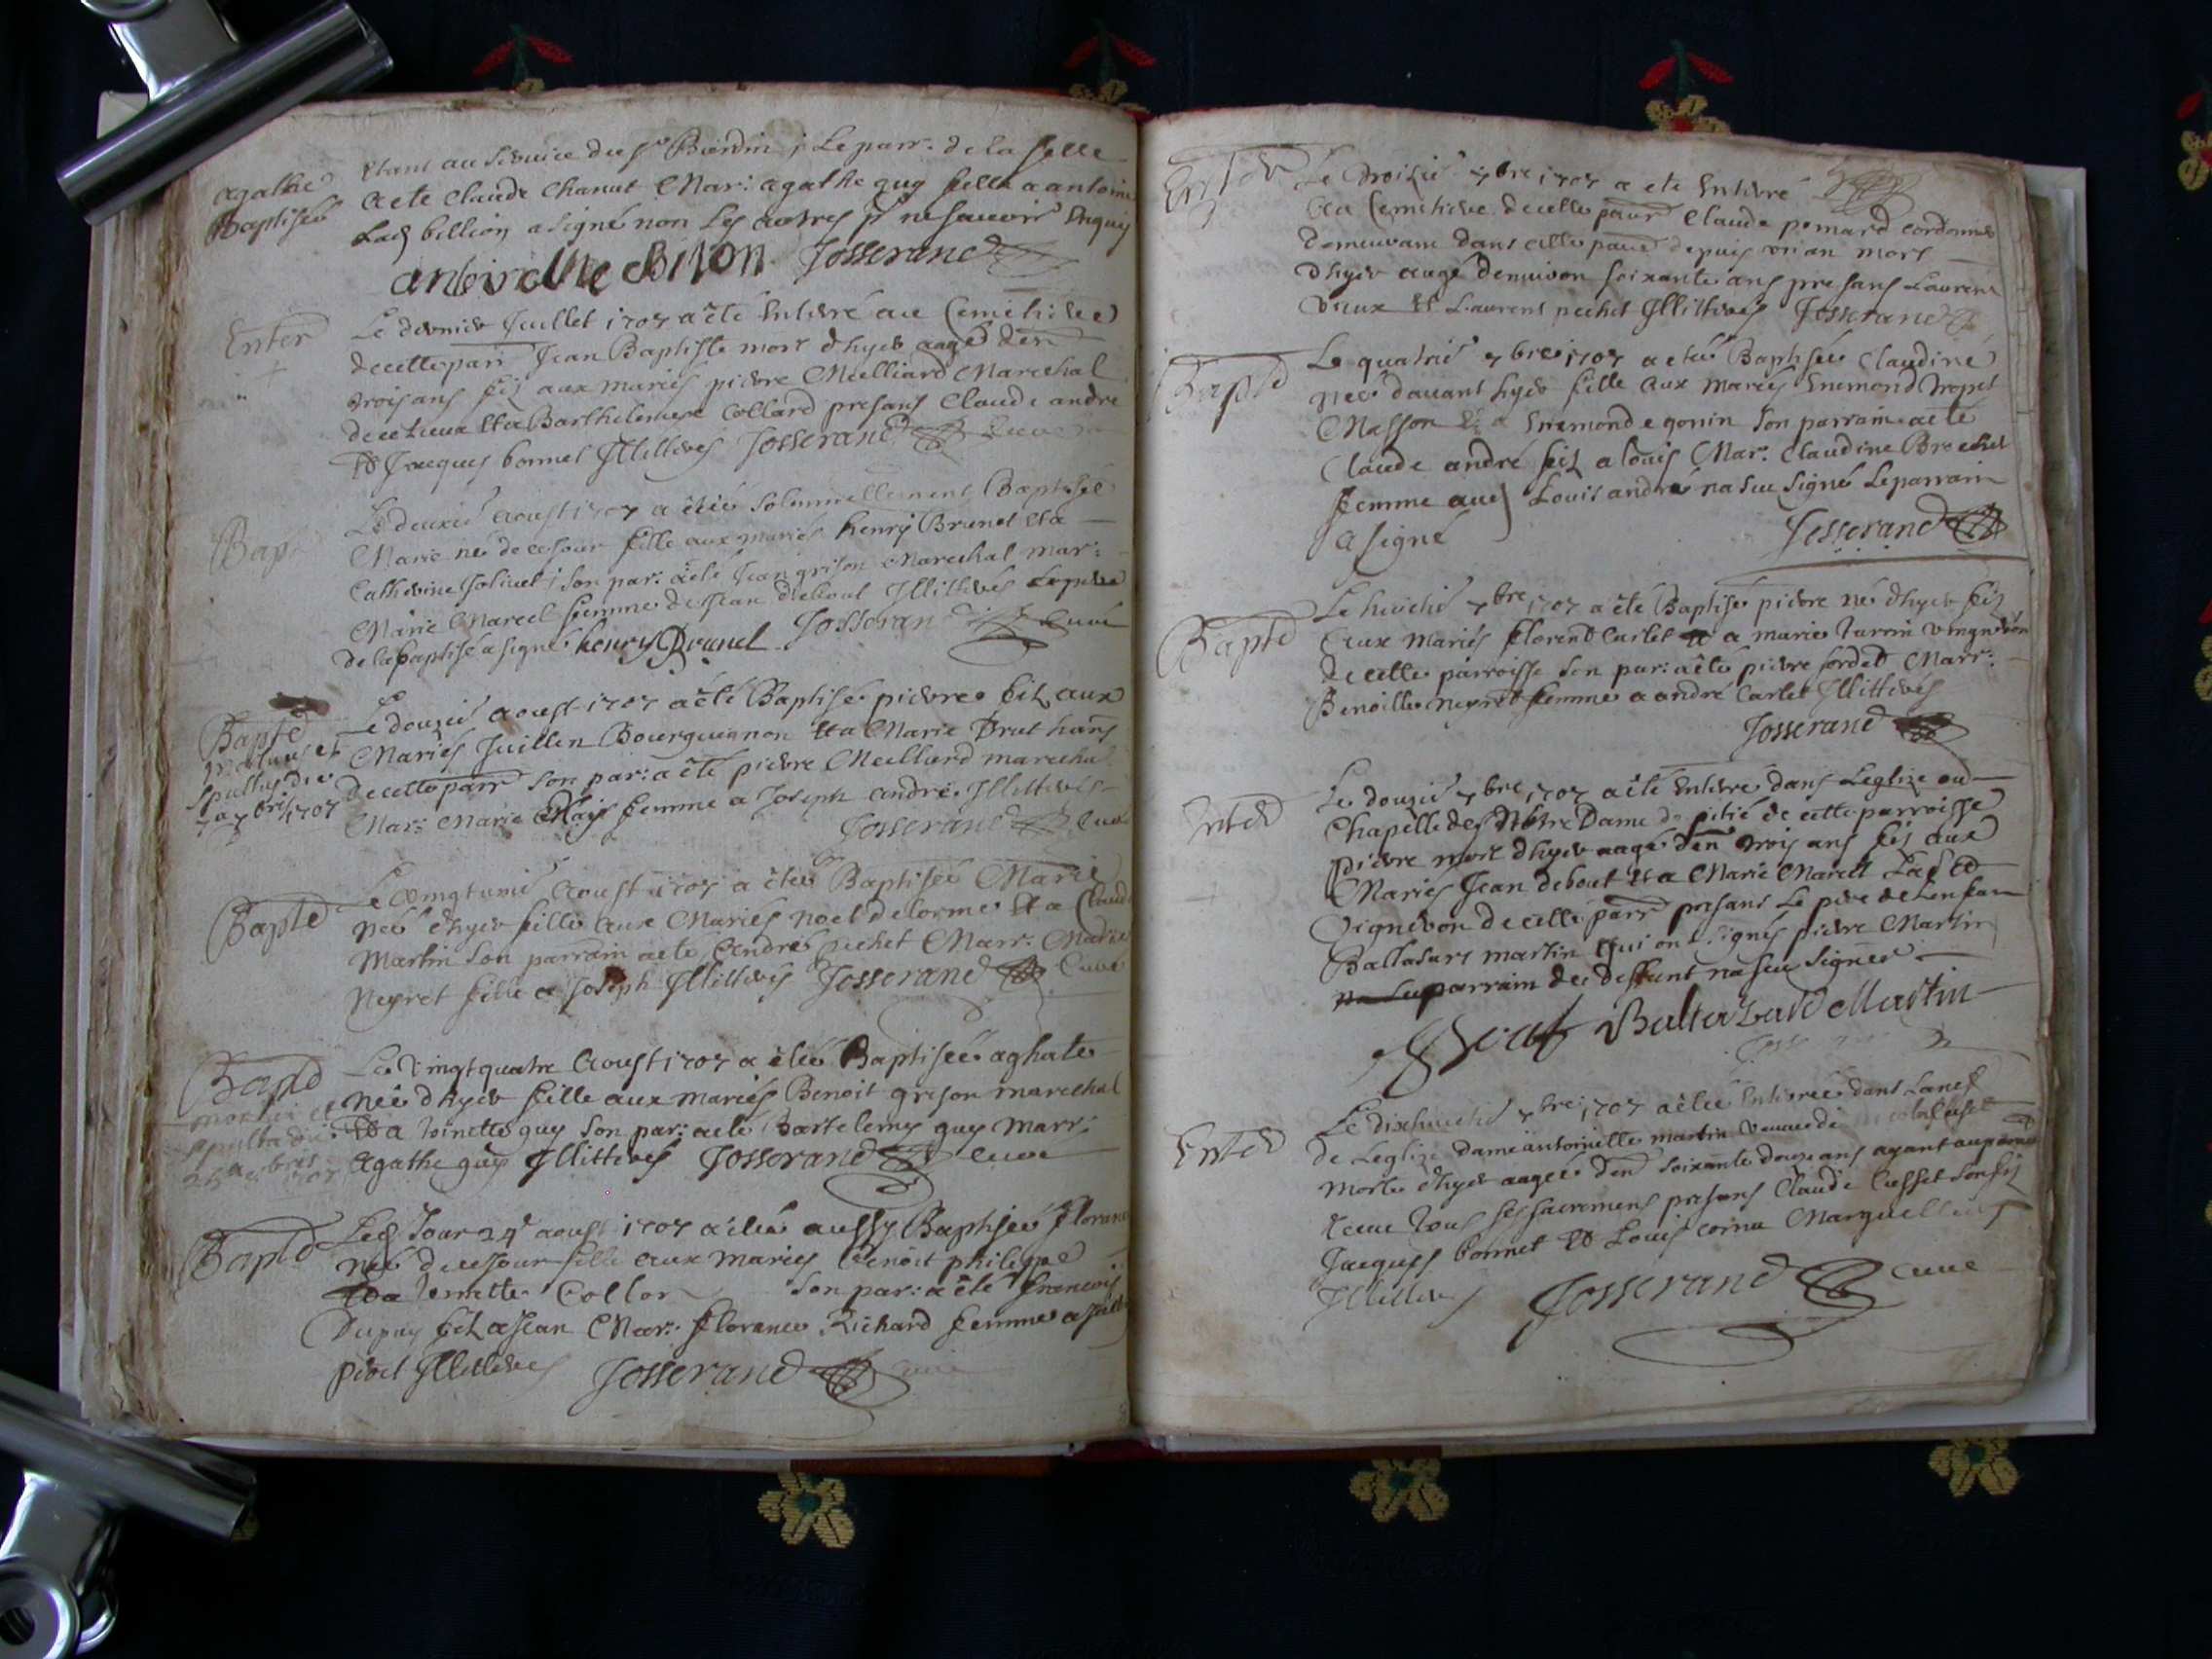 agathe
Baptisée
Estant au service du Sr Bardin ; Le parr. de la fille
a ete Claude Chanut Mar: agathe guy fille a antoine
Lad billion a signé non les autres pr ne scavoir Enquis
antoinette Bilon Josserand
Enter
Le dernier Juillet 1707 a êté Enterré au Cemetiere
de cette parr Jean Baptiste mort d'hyer aagé den
trois ans filz aux mariés pierre Meilliard Marechal
de ce Lieux et a Barthelemye Collard presans Claude andre
et Jacques bonnet Illitteres Josserand Curé
Bap
Le deuxie aoust 1707 a êtée solennellement Baptisée
Marie née de ce Jour fille aux mariés henry Brunet et a
Catherine Jolivet ; son par: a êté Jean grison Marechal mar:
Marie Marcel femme de Jean debout Illitteres Le pere
de la baptisé a signé henry Brunel Josseran Curé
Bapte
mortuus et
sepultus die
7a 7bris 1707
Le douzie aoust 1707 a êté Baptisé pierre filz aux
Mariés Juillen Bourguignon et a Marie Brut hans
de cette parr son par: a êté pierre Meilliard marechal
Mar: Marie femme a Joseph andré Illitteres
Josserand Curé
Bapte
Le vingtunie aoust 1707 a êtée Baptisée Marie
née d'hyer fille aux Mariés noel delorme et a Claud
Martin son parrain a ete andré pechet Marr: Marie
Neyret fille a Joseph Illitteres Josserand Curé
Bapd
mortua et
sepulta die
26a 1707
Le Vingt quatre aoust 1707 a êtée Baptisée aghate
née d'hyer fille aux mariés Benoit grison marechal
et a toinette guy son par: a eté Bartelemy guy Marr:
agathe guy Illitteres Josserand Curé
Bapte
Led Jour 24e aoust 1707 a êtée aussy Baptisée florance
née de ce Jour fille aux mariés Benoit philippe
et a Collon son par: a êté francois
Dupuy filz a Jean Mar: florance Richard femme a
pivet Illitteres Josserand curé
Enter
Le troisie 7bre 1707 a ete Enterré
au Cemetiere de cette parr Claude pomard cordonnier
demeurant dans cette parr depuis un an mort
d'hyer aagé denviron soixante ans presans Laurent
Vieux et Laurent pechet Illitteres Josserand
Bapte
Le quatrie 7bre 1707 a etée Baptisée Claudine
née d'avant hyer fille aux mariés Enemond tropet
Masson et a Enemonde gonin son parrain a eté
Claude andré filz a Louis Mar: Claudine Brochet
femme aud Louis andré na sceu signé Le parrain
a signé Josserand
Bapte
Le huictie 7bre 1707 a êté Baptisé pierre né d'hyer filz
aux mariés florend Carlet et a marie turrin vingneron
de cette parroisse son par: a êté pierre fordet Marr:
Benoitte neyret femme a andré Carlet Illitterés
Josserand
Inter
Le douzie 7bre 1707 a êté Enterré dans Leglize ou
Chapelle de Nôtre Dame de pitié de cette parroisse
pierre mort d'hyer aagé den trois ans filz aux
Mariés Jean debout et a Marie Marcel
Vigneron de cette parr presans Le pere de Lenfan
Baltasart martin qui on signés pierre Martin
parrain du deffunt na sceu signer
Baltazard Martin
Enter
Le dixhuictie 7bre 1707 a êtée Enterrée dans La nef
de Leglize dame antoinette martin veuve de
morte d'hyer aagée den soixante douze ans ayant auparavant
receue tous ses sacremens presans Claude Cusset son filz
Jacques bonnet et Louis cornu Marguellier
Illitteres Josserand curé